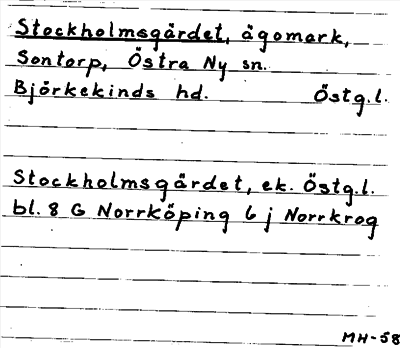 Stockholmsgärdet, ägomark,
Sontorp, Östra Ny sn.
Björkekinds hd. Östg.l.
Stockholmsgärdet, ek. Östg.l.
bl. 8 G Norrköping 6 j Norrkrog
MH-58